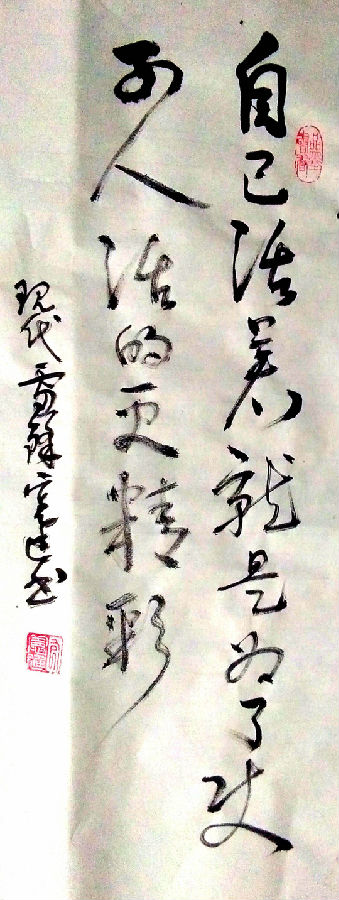 自己活着就是为了使
别人活的更精彩
现代雷锋书